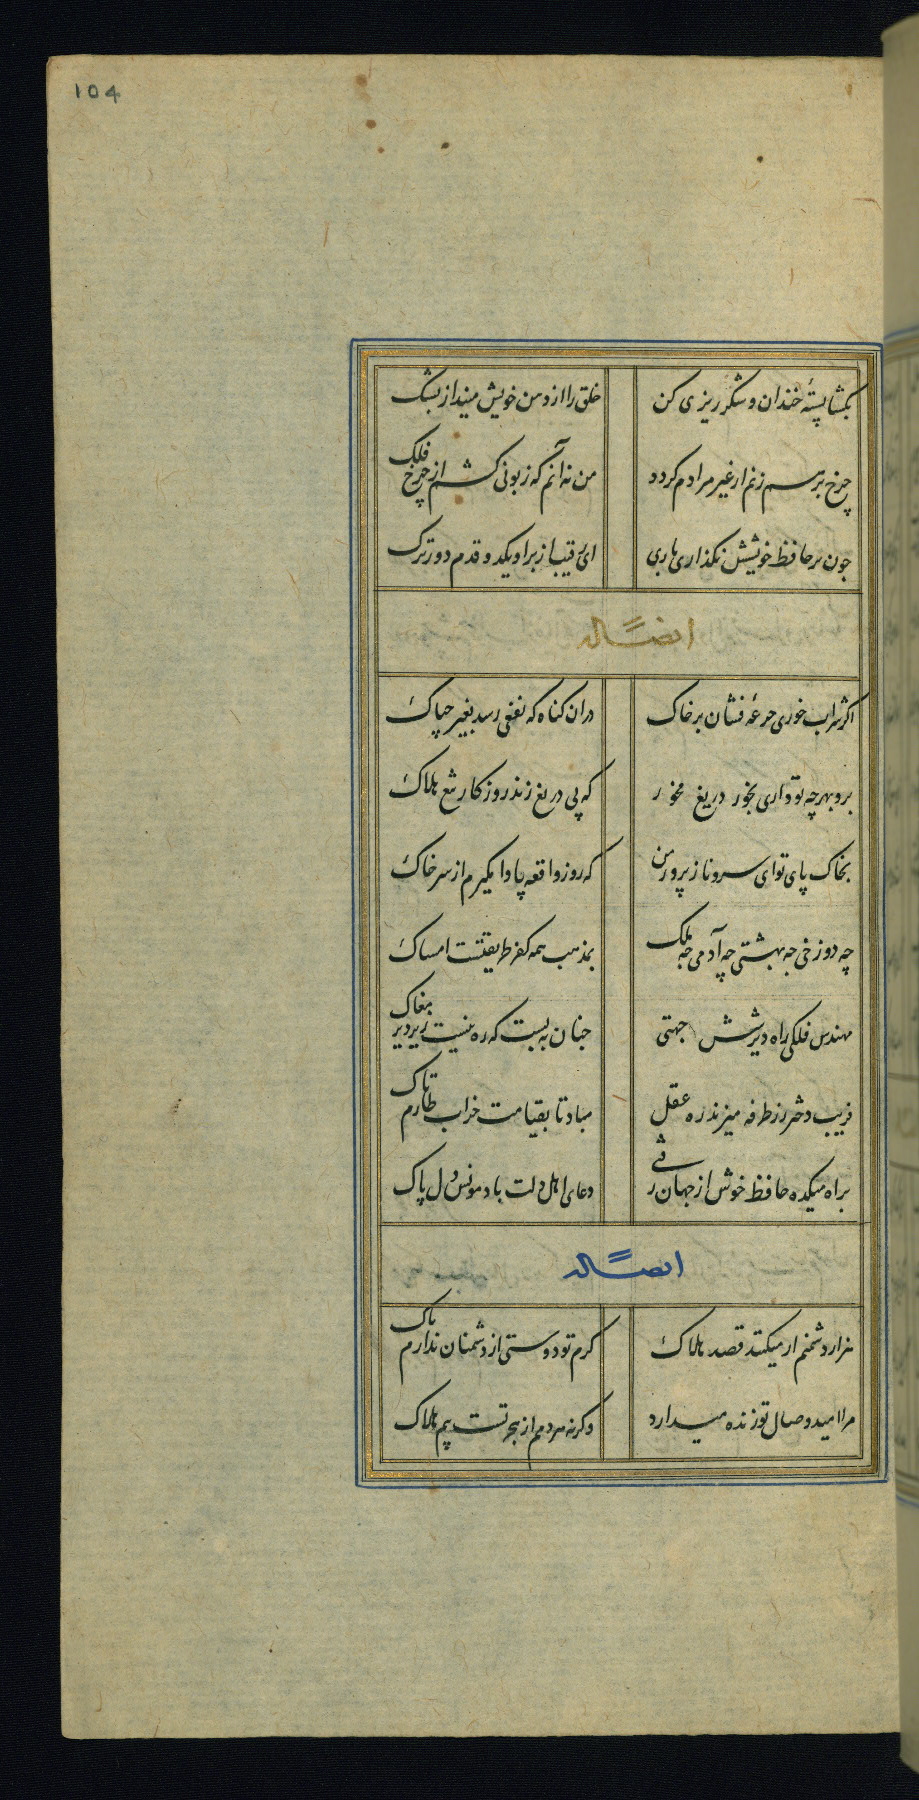 ۱۵۴
بگشا پستهٔ خندان و شکر ریزی کن
خلق را از دهن خویش مینداز بشک
چرخ برهم زنم ار غیر مرادم گردد
من نه آنم که زبونی کشم از چرخ فلک
چون بر حافظ خویشش نگذاری باری
ای رقیب از بر او یکدو قدم دورترک
ایضاً له
اگر شراب خوری جرعهٔ فشان بر خاک
در ان گناه که نفعی رسد بغیر چه باک
برو بهر چه تو داری بخور دریغ مخور
که بی دریغ زند روزگار تیغ هلاک
بخاک پای تو ای سرو ناز پرور من
که روز واقعه پا وا مگیرم از سر خاک
چه دوزخی چه بهشتی چه آدمی چه ملک
بمذهب همه کفر طریقتست امساک
مهندس فلکی راه دیر شش جهتی
چنان به بست که ره نیست زیر دیر مغاک
فریب دختر رز طرفه میزند ره عقل
مباد تا بقیامت خراب طارم تاک
براه میکده حافظ خوش از جهان رفتی
دعای اهل دلت باد مونس دل پاک
ایضاً له
هزار دشمنم ار میکنند قصد هلاک
گرم تو دوستی از دشمنان ندارم باک
مرا امید وصال تو زنده میدارد
وگرنه مردمم از هجر تست بیم هلاک